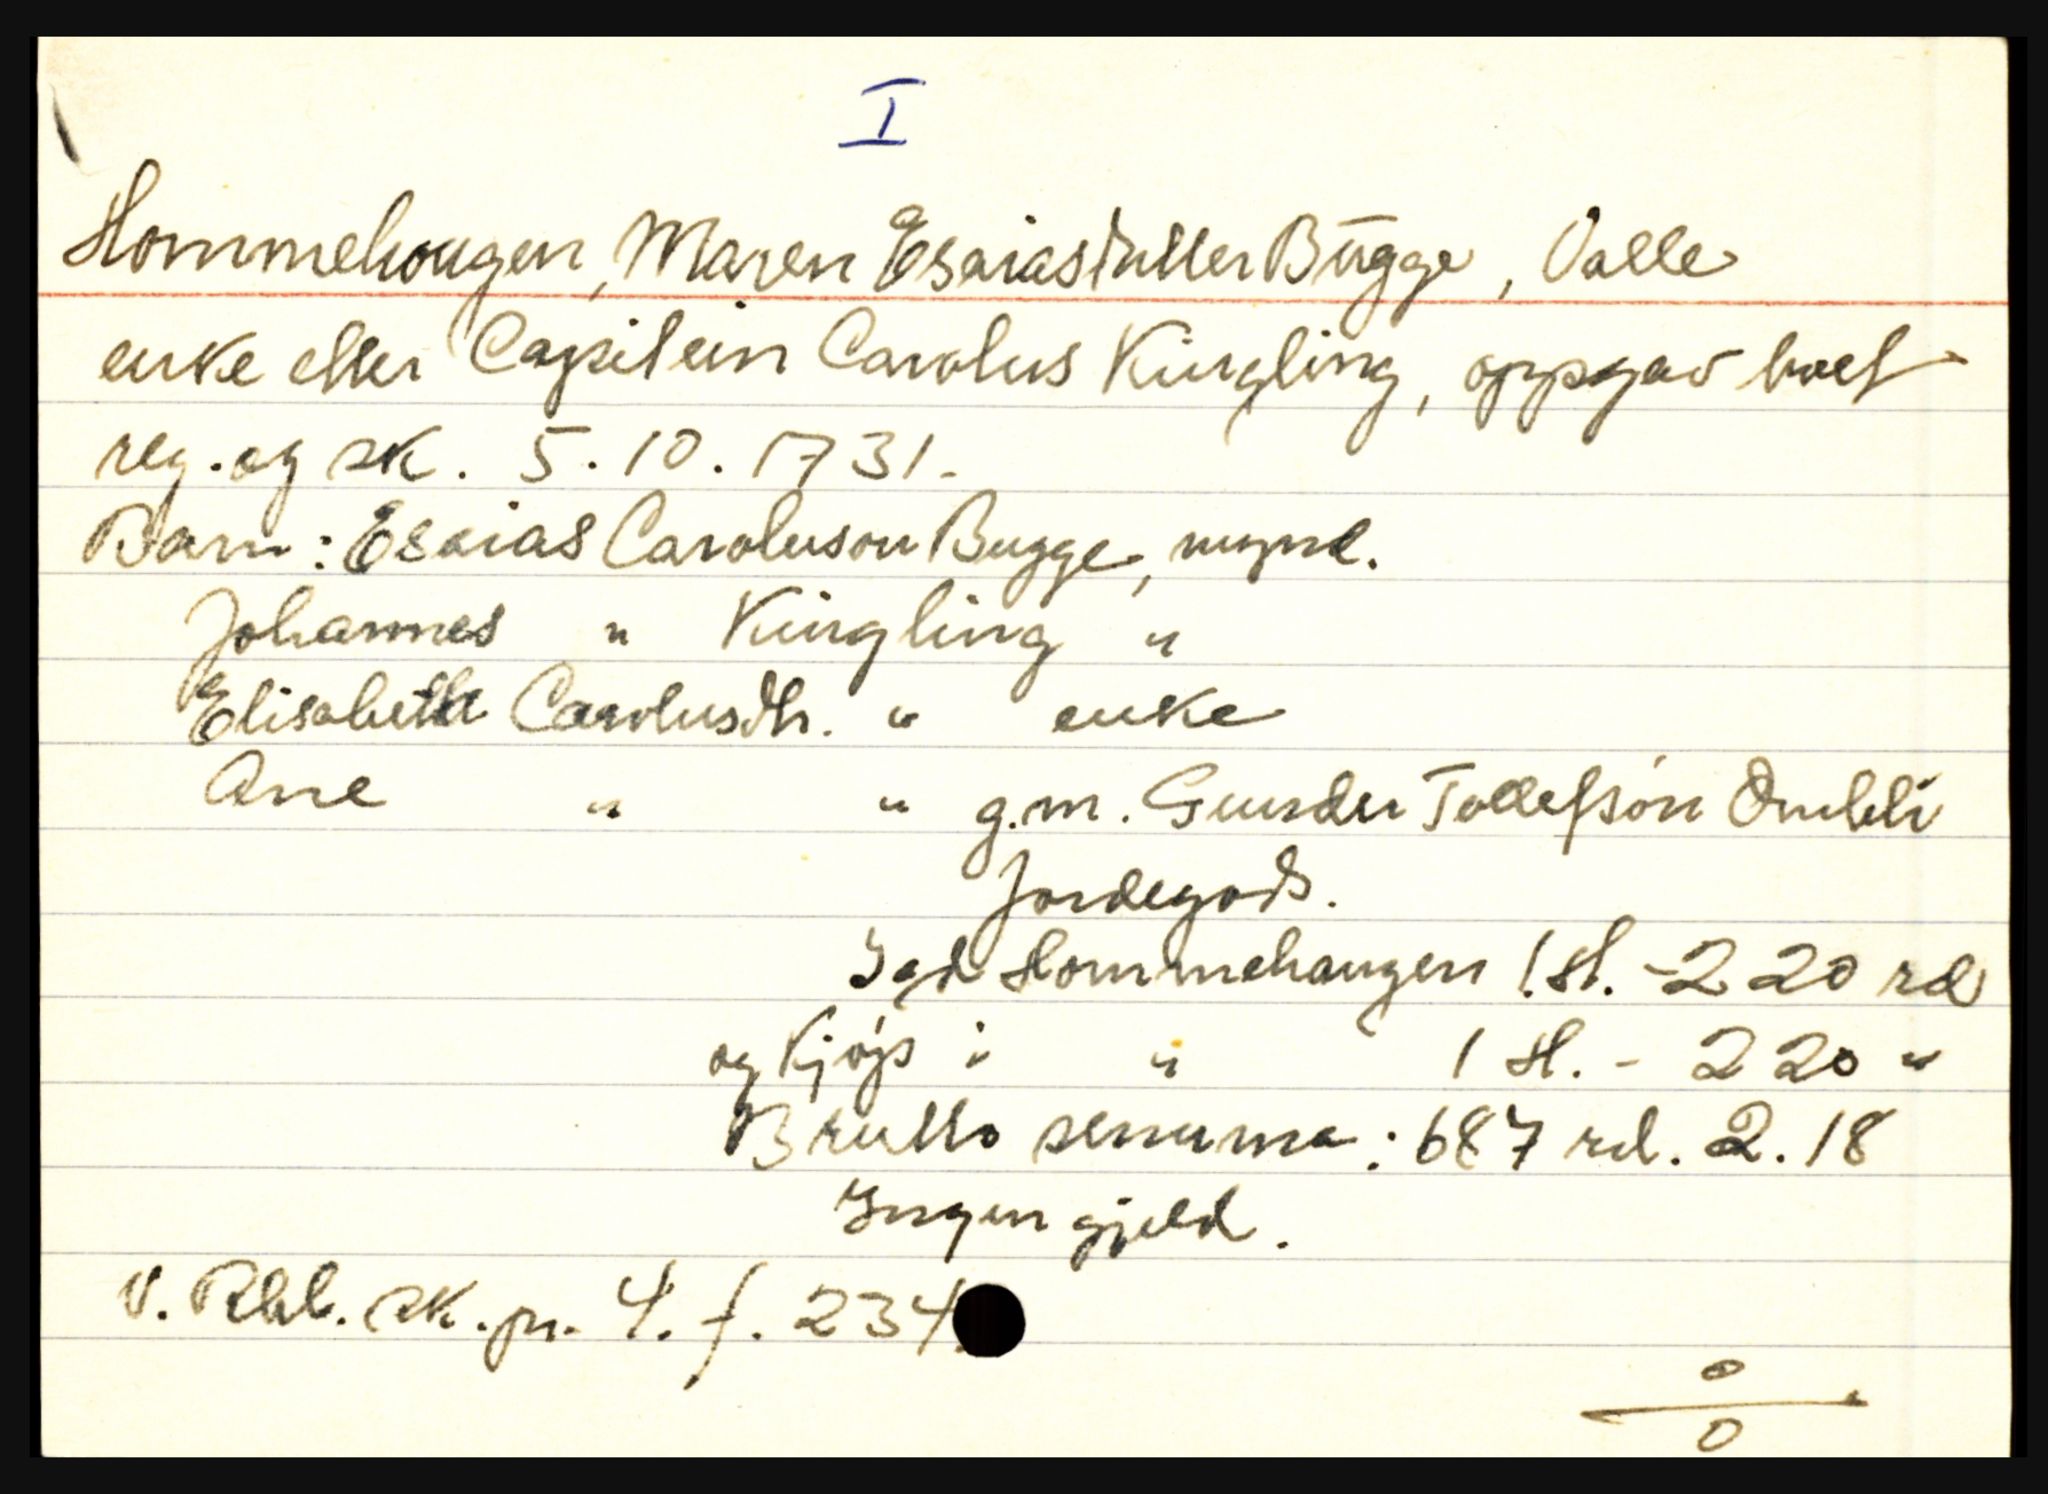 I
Hommehougen, Maren Esaiasdatter Bugge, Valle
enke etter Capitein Carolus Kingling, oppgav boet
reg. og sk. 5.10.1731.
Barn: Esaias Caroluson Bugge, mynd.
Johannes " Kingling "
Elisabeth Carolusdtr. " enke
Ane " " g.m. Gunder Tollefsön
Jordegods.
Hommehaugen 1 H. - 220 rd
og kjøp i " 1 H. - 220 "
Brutto summa: 687 rd. 2. 18
Ingen gjeld.
V. Rbl. sk. pr. 4. f. 234.
0
0